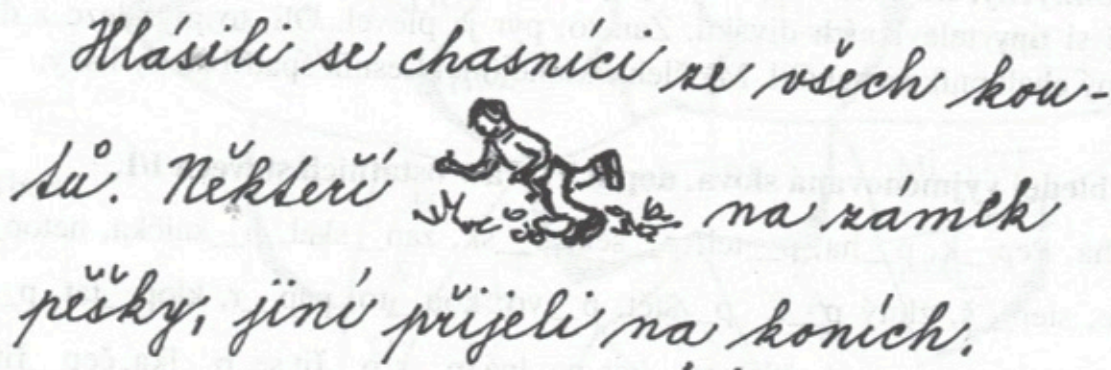 Hlásili se chasníci ze všech kou-
tů. Někteří na zámek
pěšky, jiní přijeli na koních.